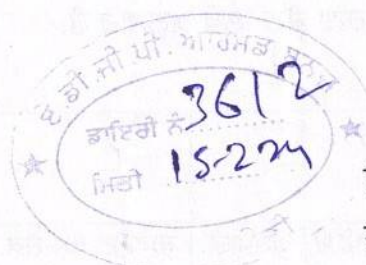 ਏ.ਡੀ.ਜੀ.ਪੀ. ਆਰਮਡ
ਡਾਇਰੀ ਨੰ. 3612
ਮਿਤੀ 15-2-24